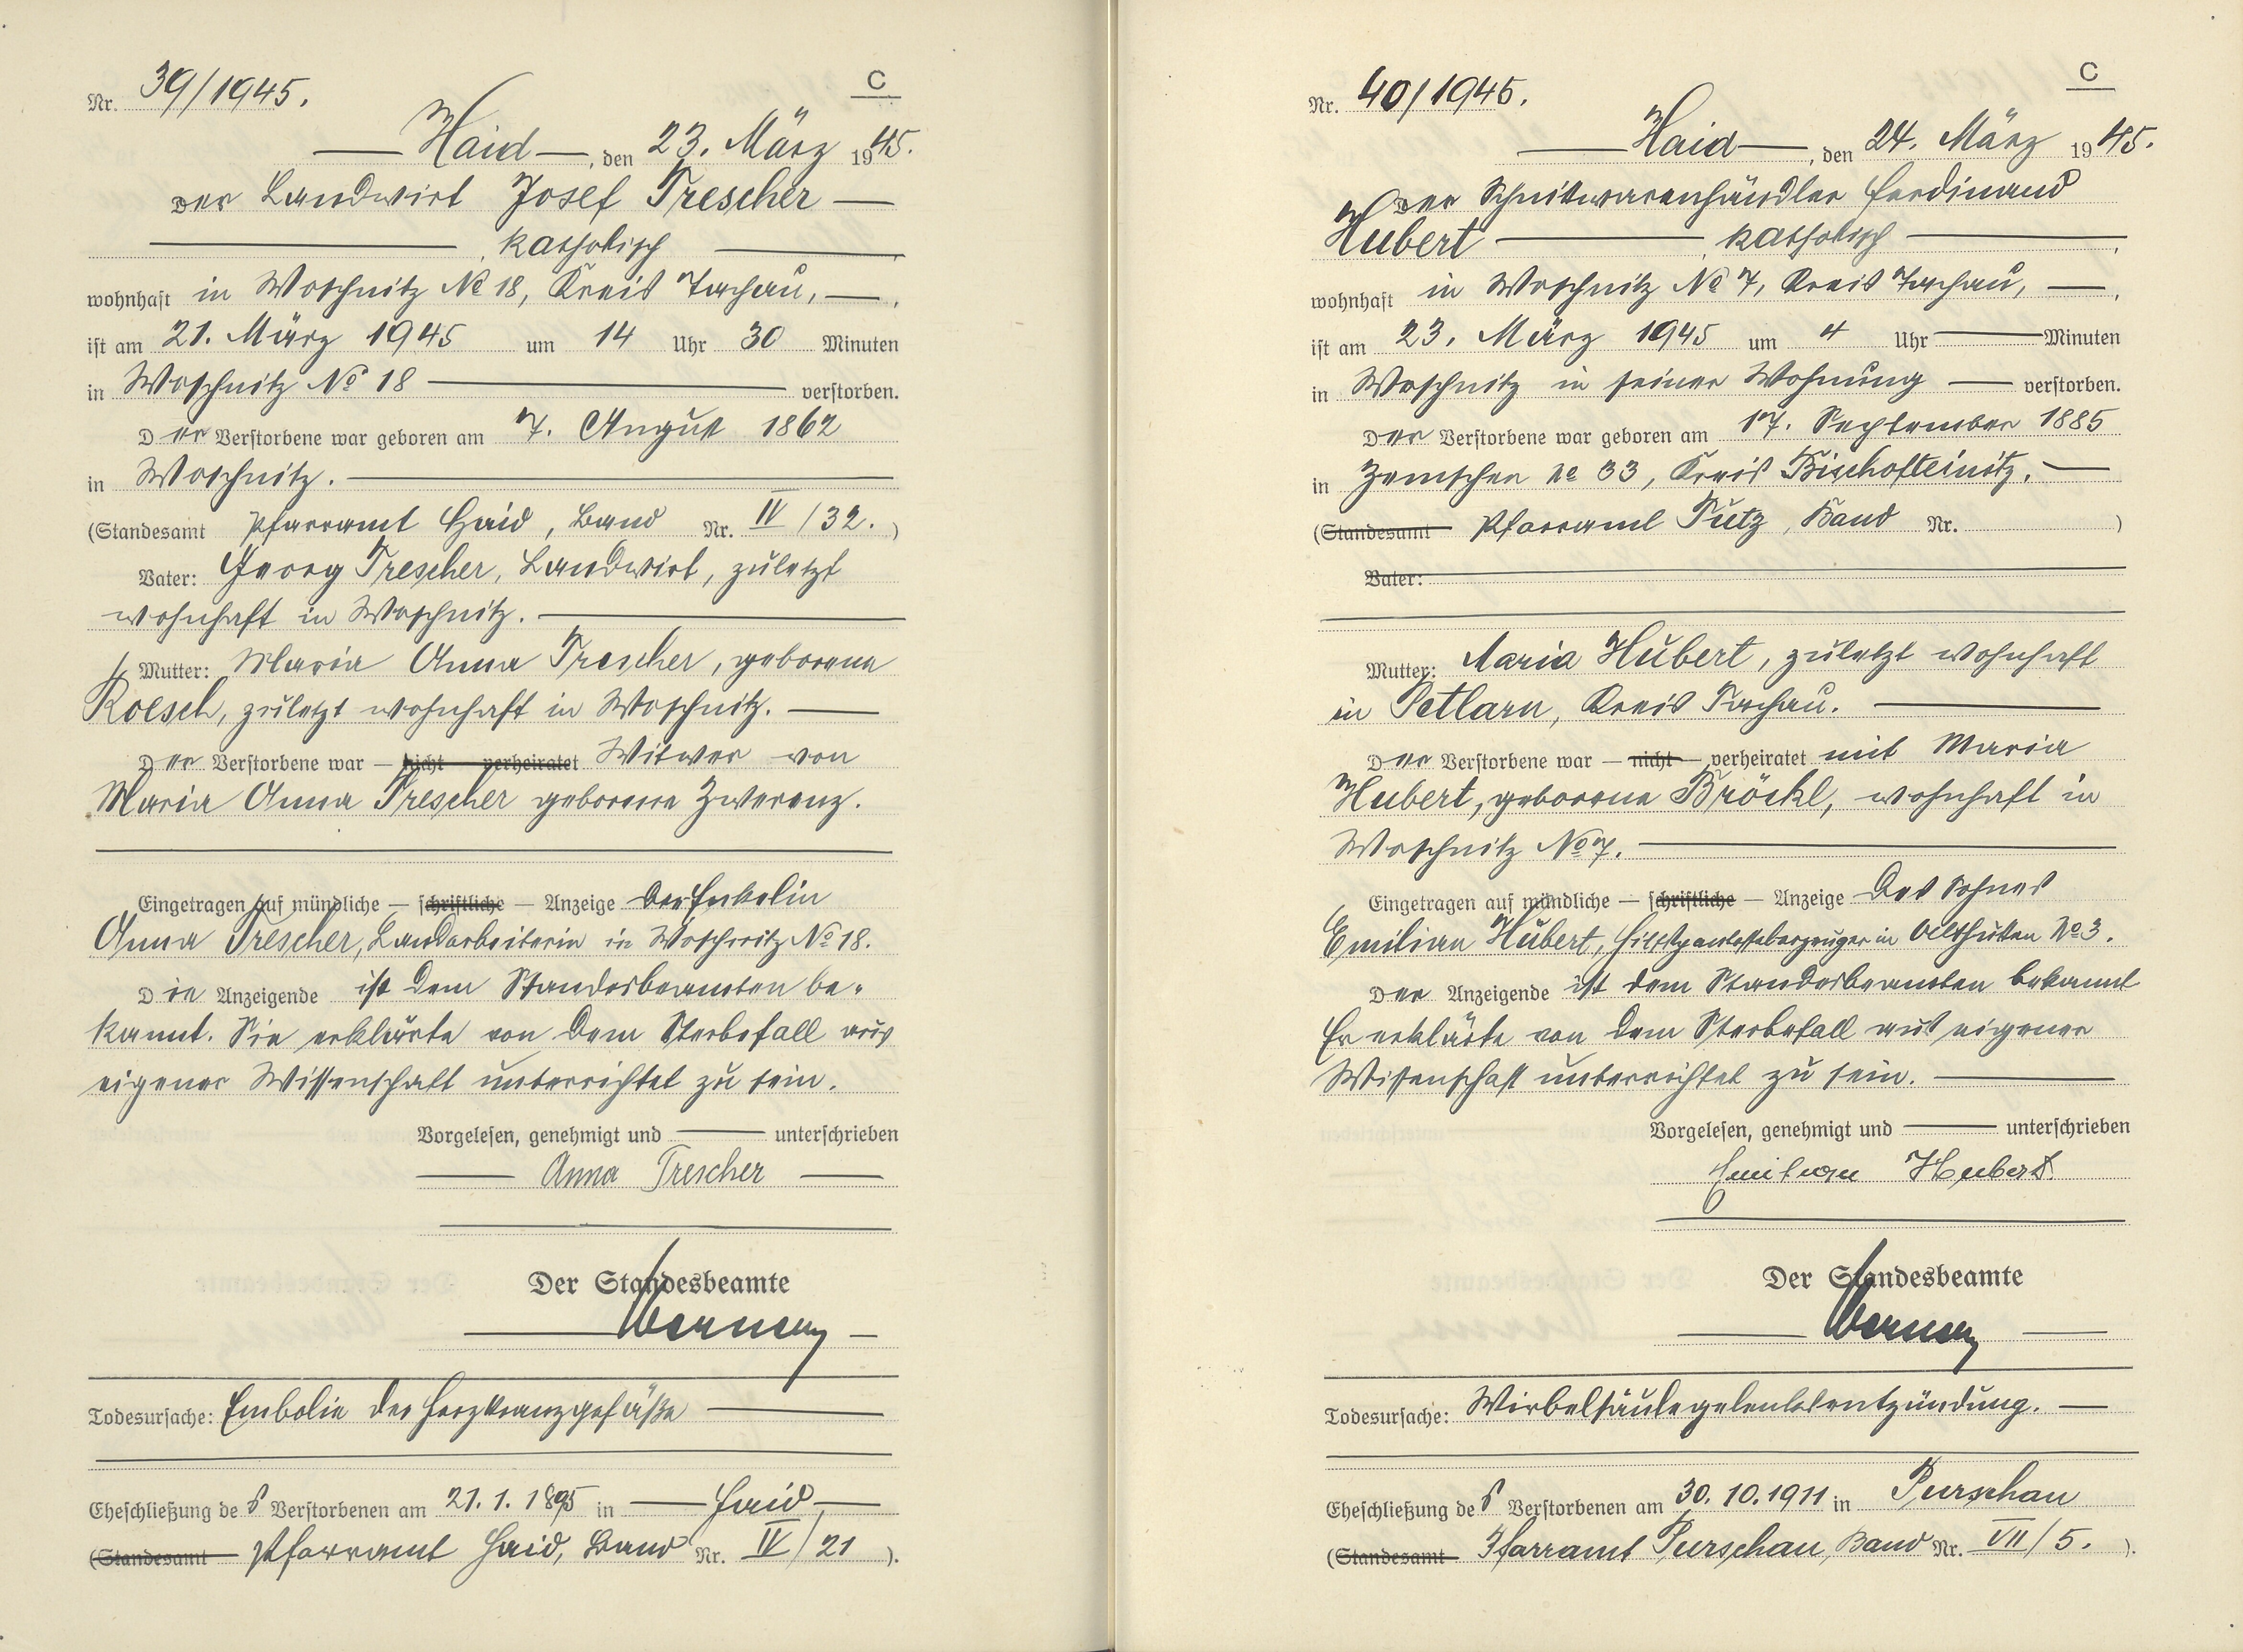 Nr. 39/1945.
C
Haid, den 23. März 1945.
Der Landwirt Josef Trescher
, katholisch
wohnhaft in Woschnitz No 18, Kreis Tachau,
ist am 21. März 1945 um 14 Uhr 30 Minuten
in Woschnitz No 18 verstorben.
Der Verstorbene war geboren am 7. August 1862
in Woschnitz.
(Standesamt Pfarramt Haid, Band Nr. IV/32.)
Vater: Georg Trescher, Landwirt, zuletzt
wohnhaft in Woschnitz.
Mutter: Maria Anna Trescher, geborene
Roesch, zuletzt wohnhaft in Woschnitz.
Der Verstorbene war — nicht — verheiratet Witwer von
Maria Anna Trescher geborene Zwerenz.
Eingetragen auf mündliche — schriftliche — Anzeige der Enkelin
Anna Trescher, Landarbeiterin in Woschnitz No 18.
Die Anzeigende ist dem Standesbeamten be-
kannt. Sie erklärte von dem Sterbefall aus
eigener Wissenschaft unterrichtet zu sein.
Vorgelesen, genehmigt und unterschrieben
Anna Trescher
Der Standesbeamte
Todesursache: Embolie der Herzkranzgefäße
Eheschließung des Verstorbenen am 21.1.1895 in Haid,
(Standesamt Pfarramt Haid, Band Nr. IV/21).
Nr. 40/1945.
C
Haid, den 24. März 1945.
Der Schnittwarenhändler Ferdinand
Hubert, katholisch,
wohnhaft in Woschnitz No 7, Kreis Tachau,
ist am 23. März 1945 um 4 Uhr Minuten
in Woschnitz in seiner Wohnung verstorben.
Der Verstorbene war geboren am 17. September 1885
in Zemschen No 33, Kreis Bischofteinitz.
(Standesamt Pfarramt Putz, Band Nr. )
Vater:
Mutter: Maria Hubert, zuletzt wohnhaft
in Petlarn, Kreis Tachau.
Der Verstorbene war — nicht — verheiratet mit Maria
Hubert, geborene Bröckl, wohnhaft in
Woschnitz No 7.
Eingetragen auf mündliche — schriftliche — Anzeige des Sohnes
Emilian Hubert, in Althütten No 3.
Der Anzeigende ist dem Standesbeamten bekannt
Er erklärte von dem Sterbefall aus eigener
Wissenschaft unterrichtet zu sein.
Vorgelesen, genehmigt und unterschrieben
Emilian Hubert
Der Standesbeamte
Todesursache: Wirbelsäulegelenksentzündung.
Eheschließung des Verstorbenen am 30.10.1911 in Purschau
(Standesamt Pfarramt Purschau, Band Nr. VII/5. ).